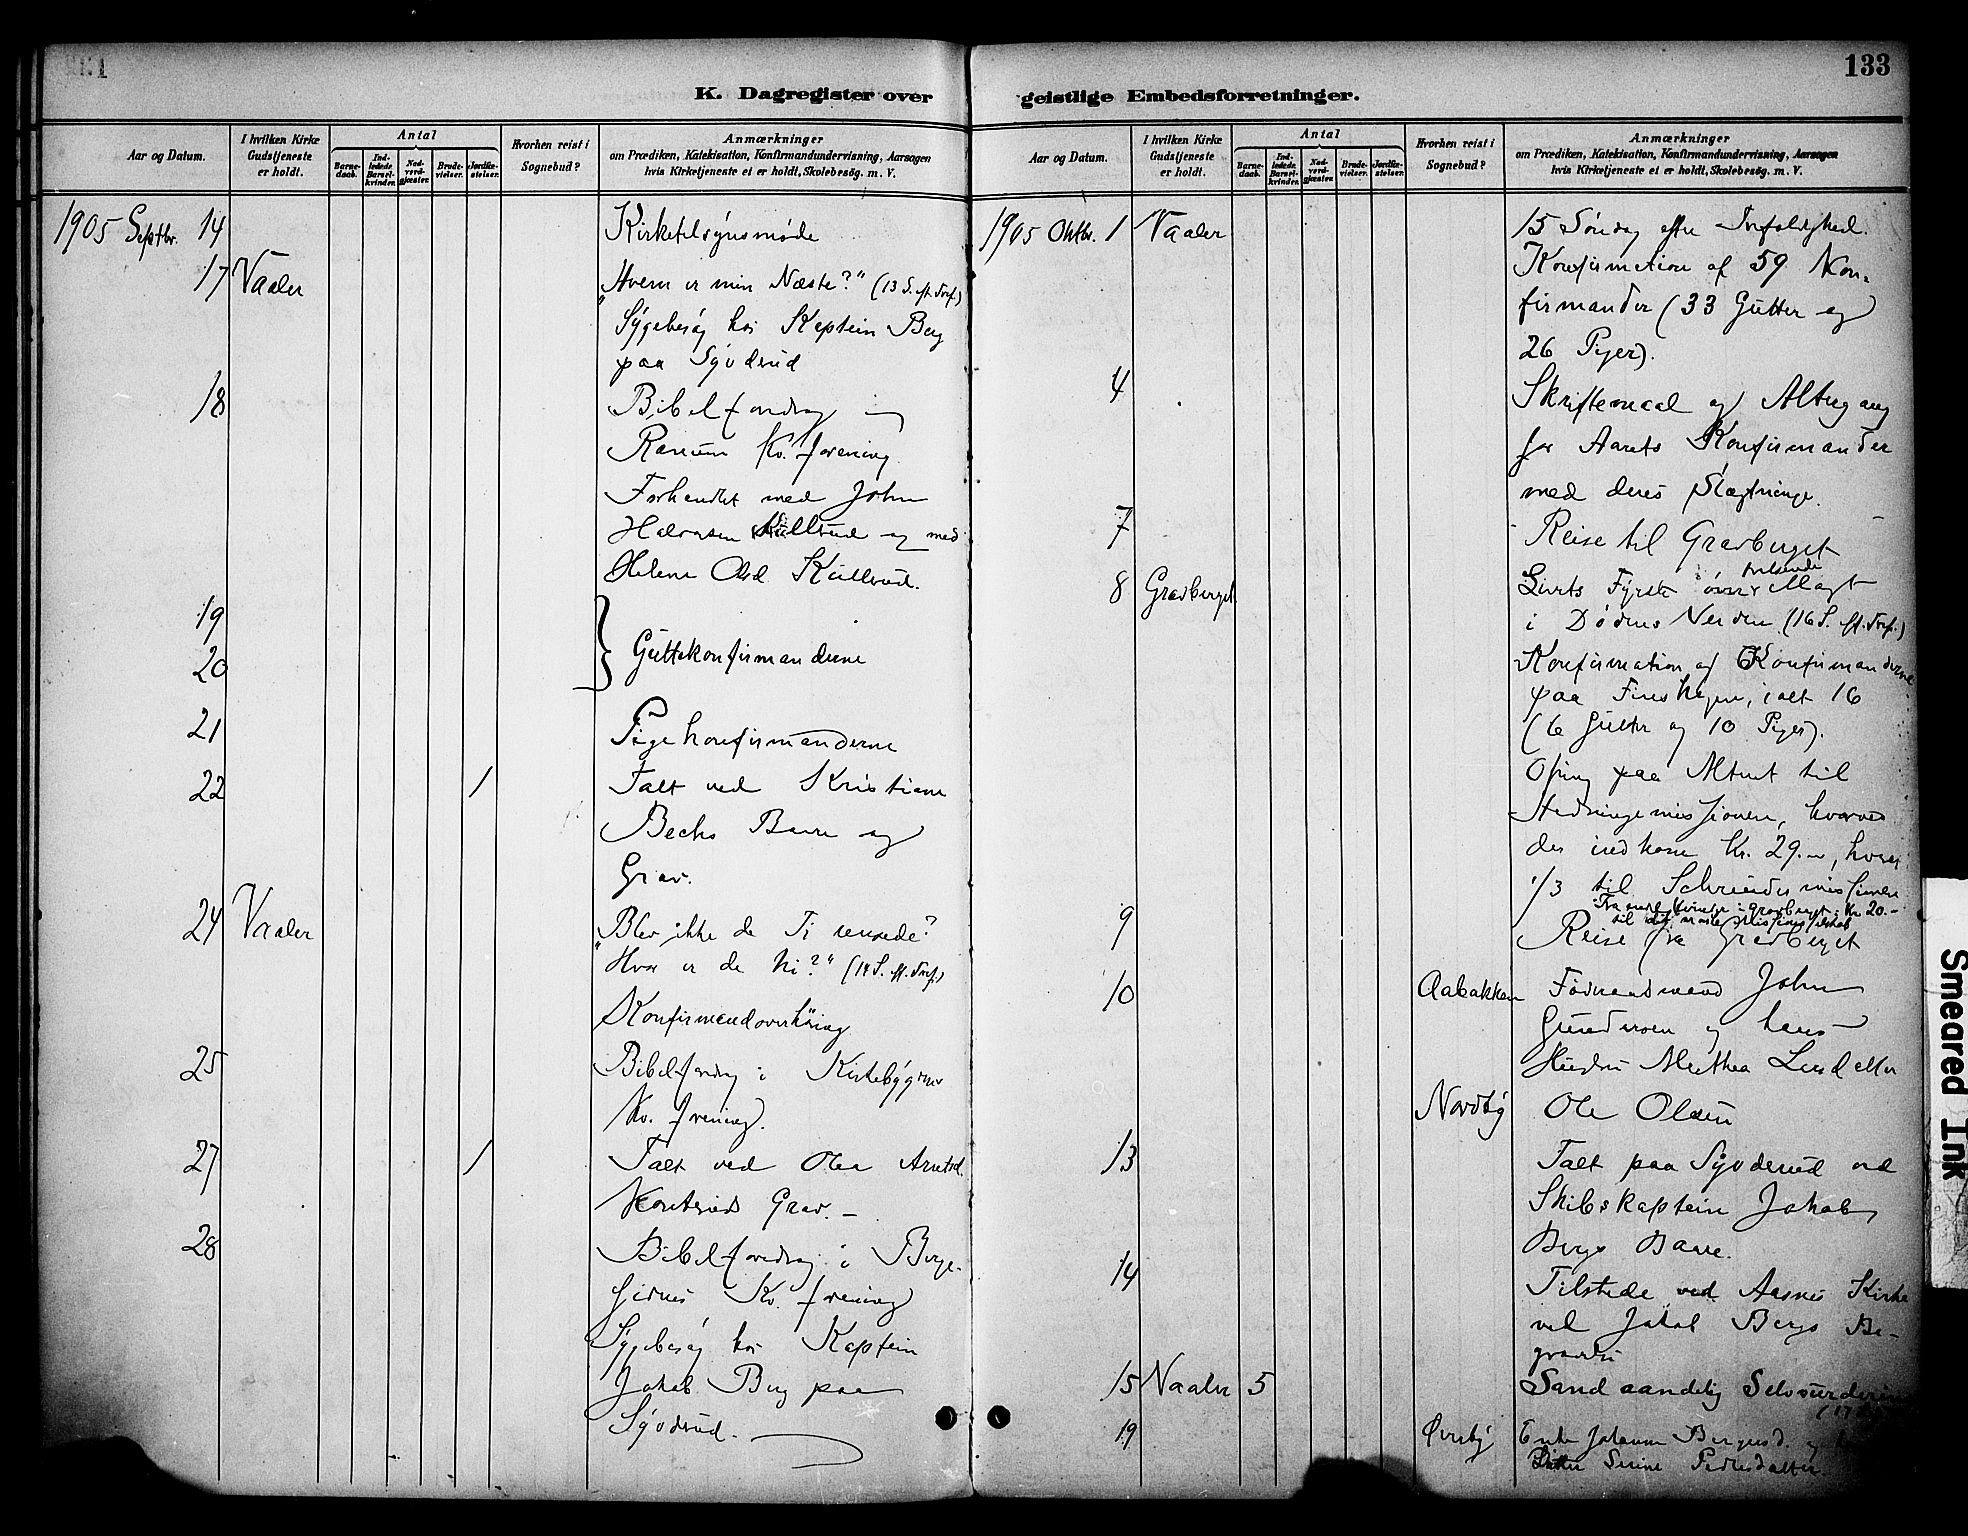 133
K. Dagregister over
geistlige Embedsforretninger.
Aar og Datum.
I hvilken Kirke Gudstjeneste er holdt.
Antal
Barne-daab.
Ind-ledede Barsel-kvinder.
Nad-verd-gjæster.
Brude-vielser.
Jordfæ-stelser.
Hvorhen reist i Sognebud?
Anmærkninger
om Prædiken, Katekisation, Konfirmandundervisning, Aarsagen
hvis Kirketjeneste ei er holdt, Skolebesög. m. V.
1905 Septbr. 14 Kirketilsynsmøde
17 Vaaler „Hvem er min Næste?“ (13 S. eft. Tref.)
Sygebesøg hos Kaptein Berg
paa Syvdrud
18 Bibelforedrag i
Kv. forening.
Forhandlet med John
Halvorsen Küllerud og med
Helene Olsd. Küllerud.
19
20 Guttekonfirmanderne
21 Pigekonfirmanderne
22 1 Talt ved Kristiane
Bechs Baare og
Grav.
24 Vaaler „Blev ikke de Ti rensede?
Hvor er de Ni?“ (14 S. eft. Tref.)
Konfirmandoverhøring
25 Bibelforedrag i Kirkebygdens
Kv. forening.
27 1 Talt ved Olea Arnetsd.
Grav. –
28 Bibelforedrag i Berge-
Kv. forening
Sygebesøg hos Kaptein
Jakob Berg paa
Syvdrud.
Aar og Datum.
I hvilken Kirke Gudstjeneste er holdt.
Antal
Barne-daab.
Ind-ledede Barsel-kvinder.
Nad-verd-gjæster.
Brude-vielser.
Jordfæ-stelser.
Hvorhen reist i Sognebud?
Anmærkninger
om Prædiken, Katekisation, Konfirmandundervisning, Aarsagen
hvis Kirketjeneste ei er holdt, Skolebesög. m. V.
1905 Oktbr. 1 Vaaler 15 Søndag efter Trefoldighed.
Konfirmation af 59 Kon-
firmander (33 Gutter og
26 Piger).
4 Skriftemaal og Altergang
for Aarets Konfirmander
med deres Slægtninge.
7 Reise til Gravberget
8 Gravberget Livets Fyrste øver frelsende Magt
i Dødens Verden (16 S. eft. Tref.)
Konfirmation af Konfirmanderne
paa Finskogen, ialt 16
(6 Gutter og 10 Piger).
Ofring paa Alteret til
Hedningemissionen, hvorved
der indkom Kr. 29.–, hvoraf
1/3 til Schreudermissionen
Fra Kvindef. i Gravberget: Kr 20.–
til det norske Missionsselskab
9 Reise fra Gravberget
10 Aabakken Føderaadsmand John
Gundersen og hans
Hustru Mathea Larsdatter
Nordby Ole Olsen
13 Talt paa Syvdrud ved
Skibskaptein Jakob
Bergs Baare.
14 Tilstede ved Aasnes Kirke
ved Jakob Bergs Be-
gravelse
15 Vaaler 5 Sand aandelig Selvvurdering
19 Øverby Enke Johanne Bergersd. og
Datter Serine Pedersdatter.
Smeared Ink